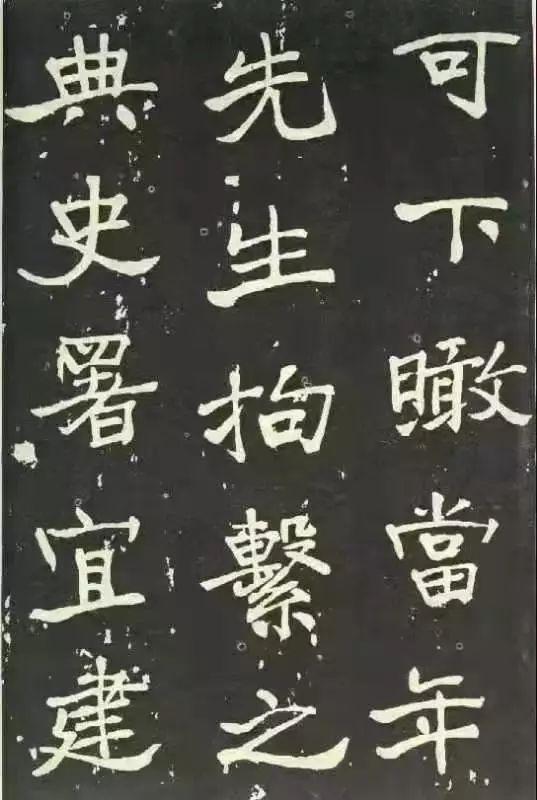 可下瞰當年
先生拘繫之
典史署宜建